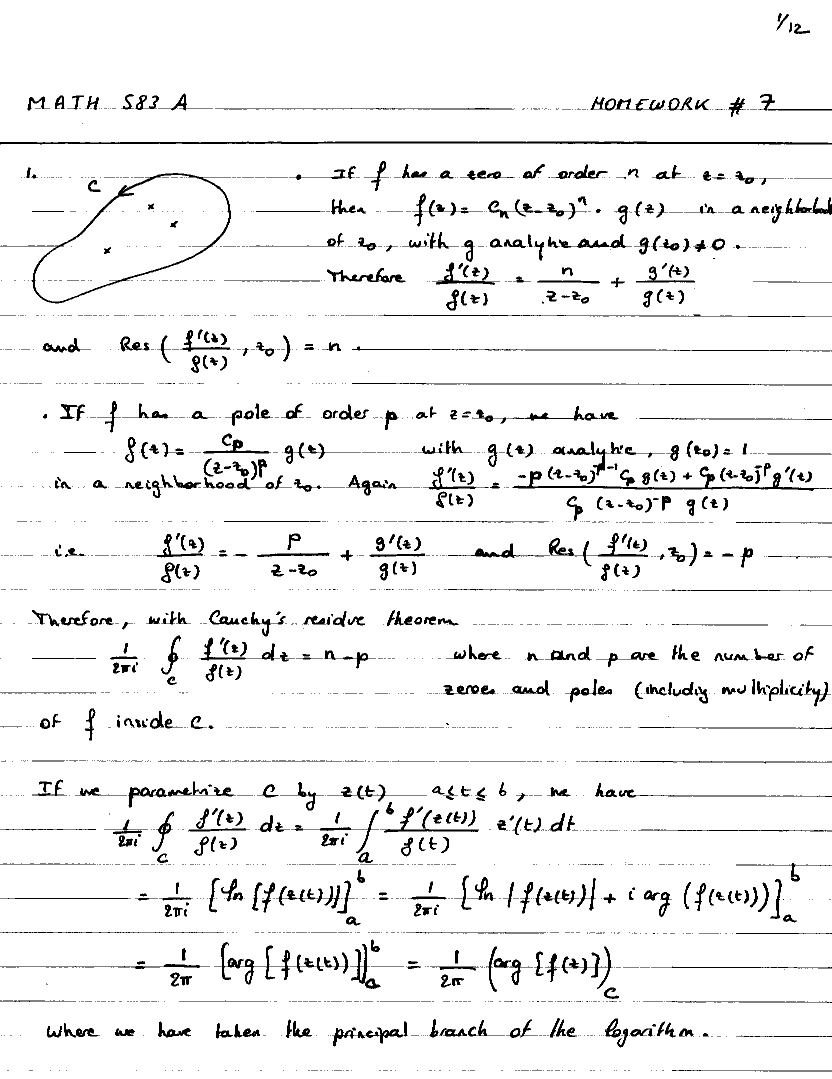 1/12
MATH 583 A HOMEWORK # 7
1. C . If f has a zero of order n at z = z₀,
then f(z) = Cₙ(z-z₀)ⁿ . g(z) in a neighborhood
of z₀, with g analytic and g(z₀) ≠ 0.
Therefore f'(z)/f(z) = n/(z-z₀) + g'(z)/g(z)
and Res ( f'(z)/f(z) , z₀ ) = n .
. If f has a pole of order p at z = z₀, we have
f(z) = Cp/(z-z₀)^p g(z) with g(z) analytic, g(z₀) = 1
in a neighborhood of z₀. Again f'(z)/f(z) = (-p(z-z₀)^(-p-1) Cp g(z) + Cp(z-z₀)^(-p) g'(z))/(Cp (z-z₀)^(-p) g(z))
i.e. f'(z)/f(z) = - p/(z-z₀) + g'(z)/g(z) and Res ( f'(z)/f(z) , z₀ ) = - p
Therefore, with Cauchy's residue theorem
1/2πi ∮_C f'(z)/f(z) dz = n - p where n and p are the number of
zeroes and poles (including multiplicity)
of f inside C.
If we parametrize C by z(t) a ≤ t ≤ b, we have
1/2πi ∮_C f'(z)/f(z) dz = 1/2πi ∫_a^b f'(z(t))/f(t) z'(t) dt
= 1/2πi [ln [f(z(t))]]_a^b = 1/2πi [ln |f(z(t))| + i arg (f(z(t)))]_a^b
= 1/2π [arg [f(z(t))]]_a^b = 1/2π (arg [f(z)])_C
where we have taken the principal branch of the logarithm.